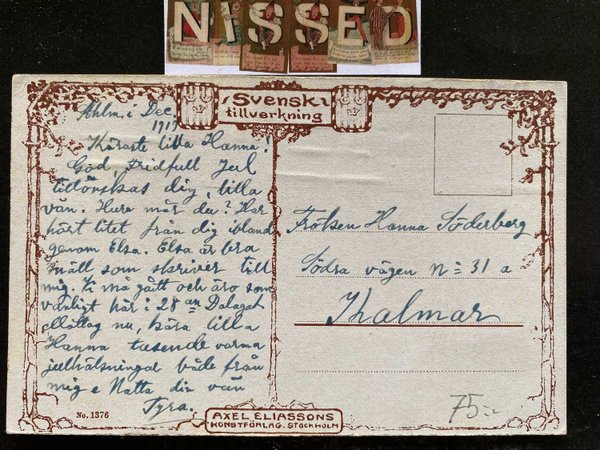 NISSED
Svensk
tillverkning
Sthlm. i Dec.
1917
Käraste lilla Hanna!
God Fridfull Jul
tillönskas dig, lilla
vän. Hure mår du? Har
hört litet från dig ibland
genom Elsa. Elsa är bra
snäll som skriver till
mig. Vi må gått och äro som
vanligt här i 28 an Dalagat
nu, kära lilla
Hanna tusende varma
julhälsningar både från
mig o Natta din vän
Tyra.
Fröken Hanna Söderberg
Södra vägen No 31 a
Kalmar
75:-
No. 1376
AXEL ELIASSONS
KONSTFÖRLAG. STOCKHOLM